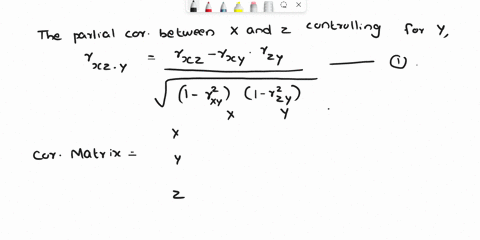 The partial cor. between x and z controlling for y,
r_xz.y = (r_xz - r_xy . r_zy) / √((1 - r²_xy) (1 - r²_zy)) —— ①.
x y
x
Cor. Matrix = y
z